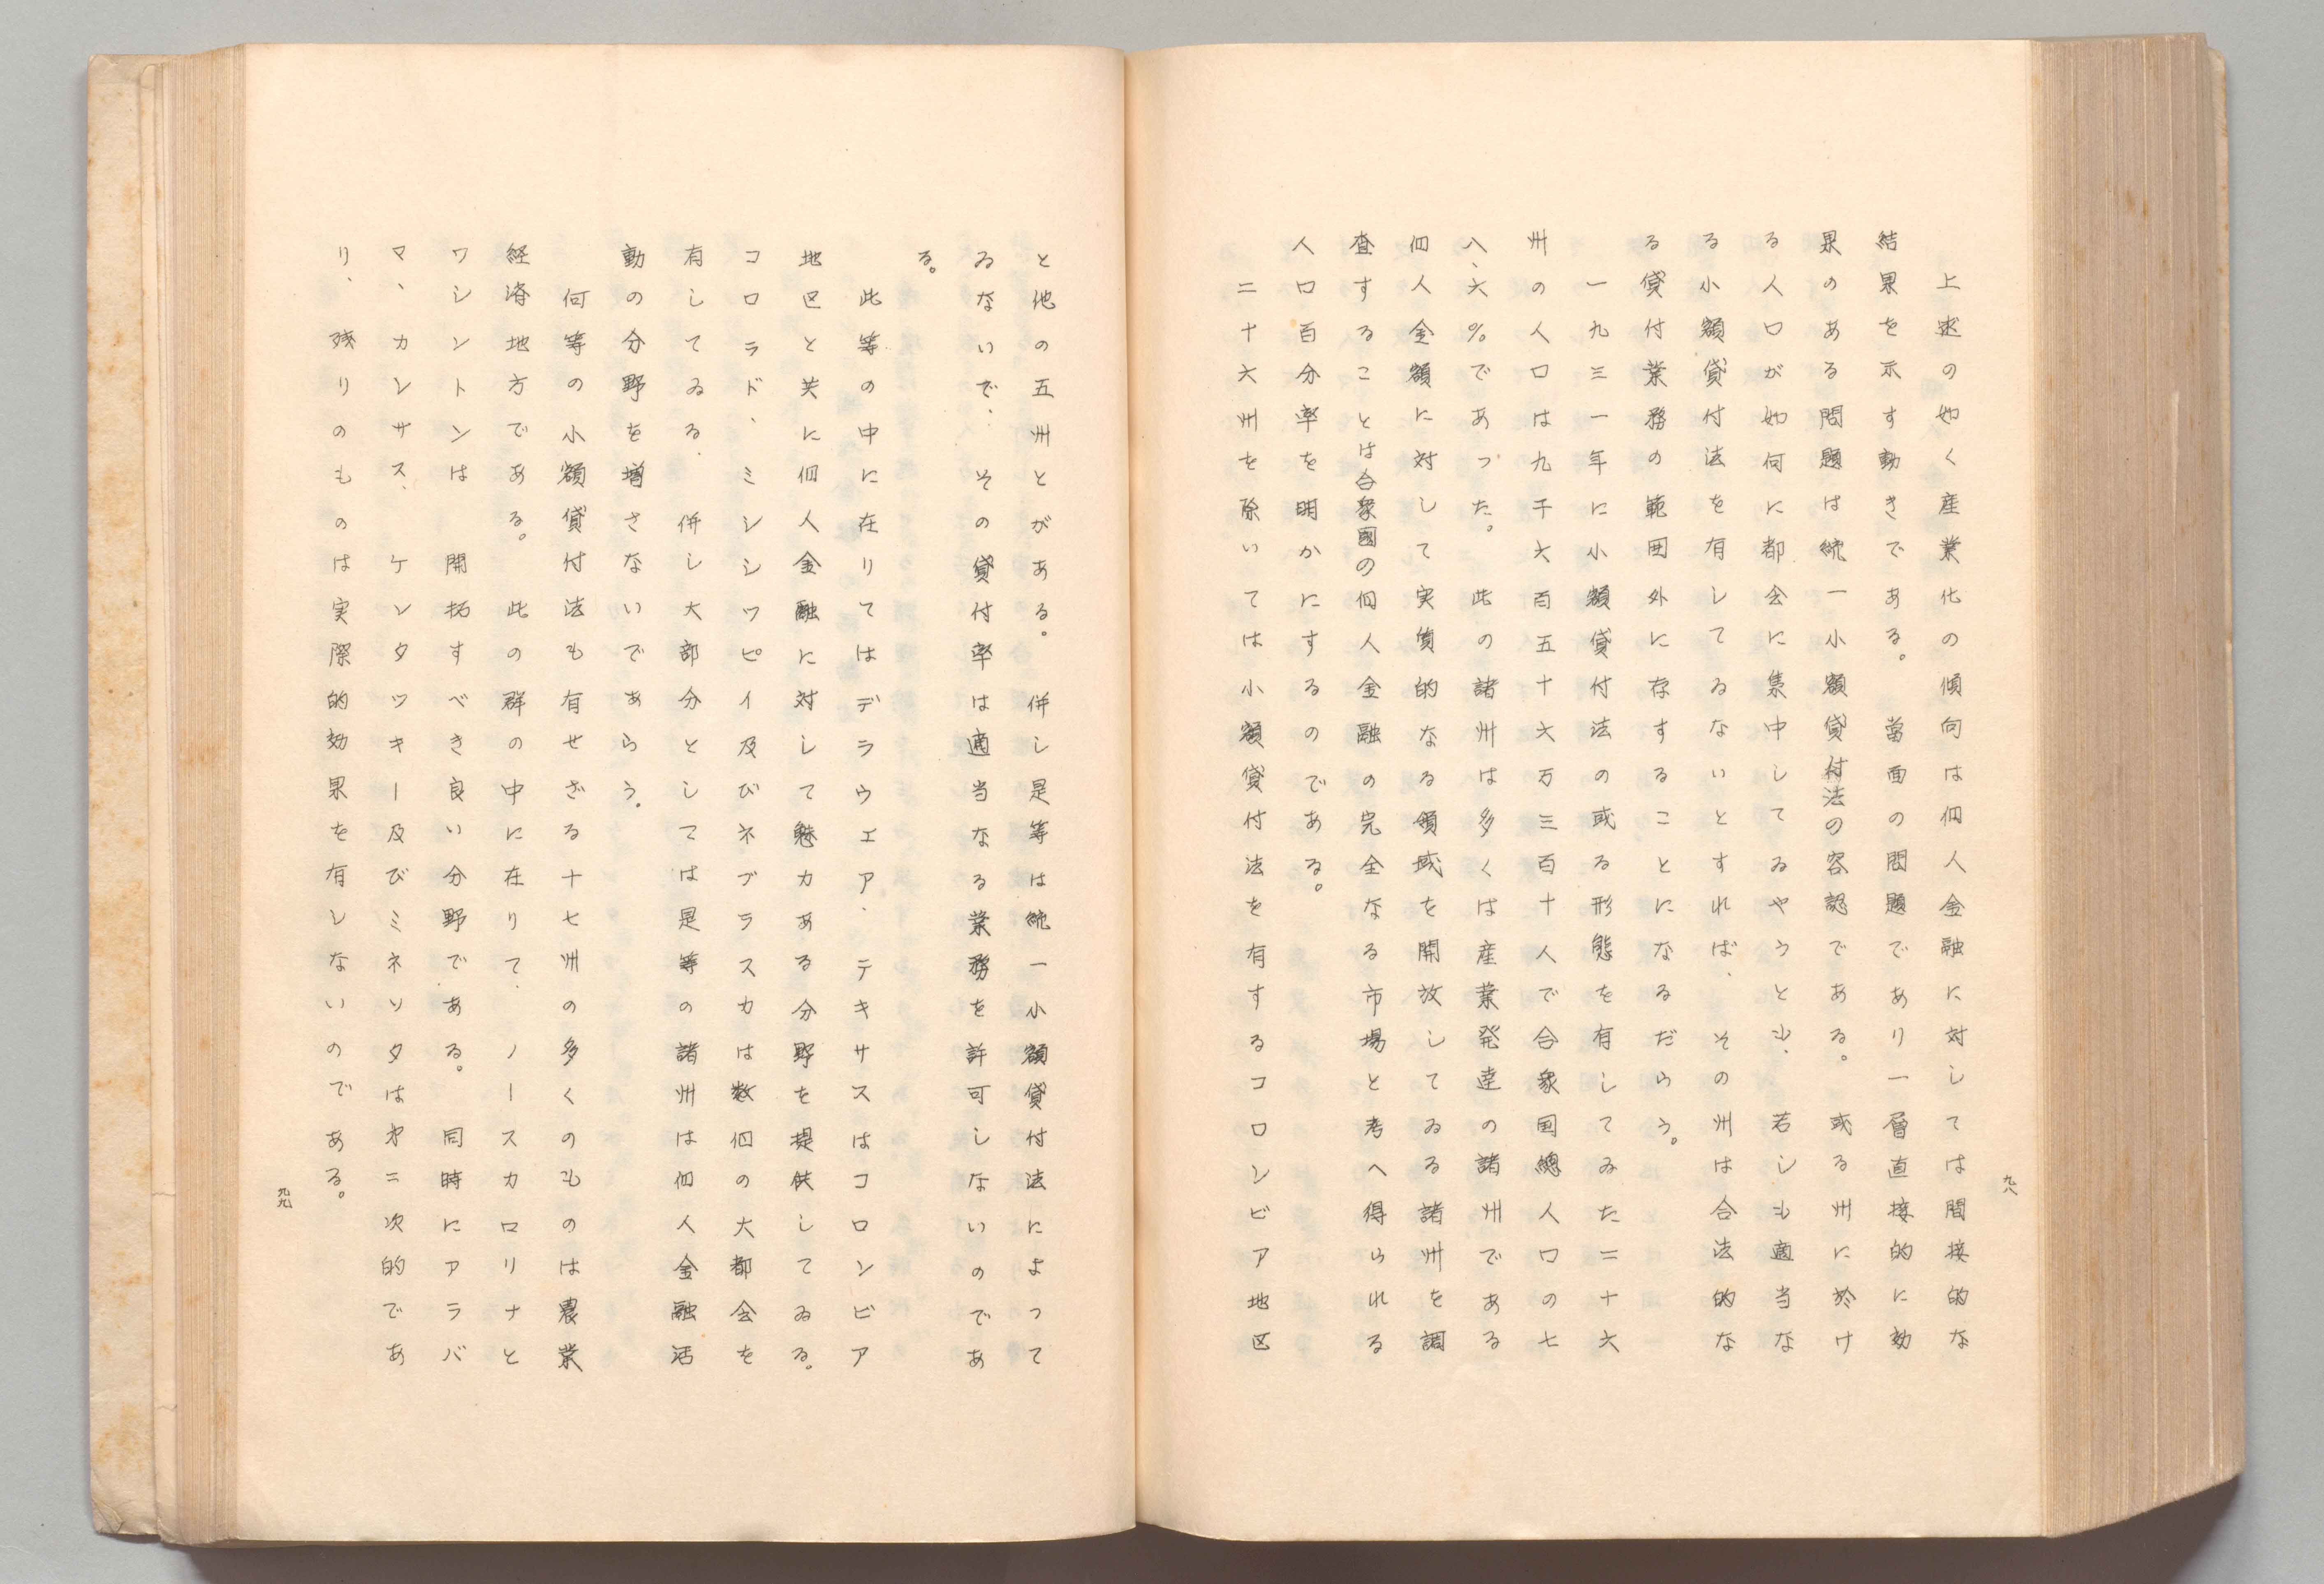 九八
上述の如く産業化の傾向は個人金融に対しては間接的な
結果を示す動きである。当面の問題であり一層直接的に効
果のある問題は統一小額貸付法の容認である。或る州に於け
る人口が如何に都会に集中してゐやうとも、若しも適当な
る小額貸付法を有してゐないとすれば、その州は合法的な
る貸付業務の範囲外に存することになるだらう。
一九三一年に小額貸付法の或る形態を有してゐた二十六
州の人口は九千六百五十六万三百十人で合衆国總人口の七
八、六％であった。此の諸州は多くは産業発達の諸州である
個人金額に対して実質的なる領域を開放してゐる諸州を調
査することは合衆國の個人金融の完全なる市場と考へ得られる
人口百分率を明かにするのである。
二十六州を除いては小額貸付法を有するコロンビア地区
と他の五州とがある。併し是等は統一小額貸付法によって
ゐないで、その貸付率は適当なる業務を許可しないのであ
る。
此等の中に在りてはデラウェア、テキサスはコロンビア
地区と共に個人金融に対して魅力ある分野を提供してゐる。
コロラド、ミシシッピイ及びネブラスカは数個の大都会を
有してゐる。併し大部分としては是等の諸州は個人金融活
動の分野を増さないであらう。
何等の小額貸付法も有せざる十七州の多くのものは農業
経済地方である。此の群の中に在りて、ノースカロリナと
ワシントンは開拓すべき良い分野である。同時にアラバ
マ、カンサス、ケンタッキー及びミネソタは才二次的であ
り、残りのものは実際的効果を有しないのである。
九九